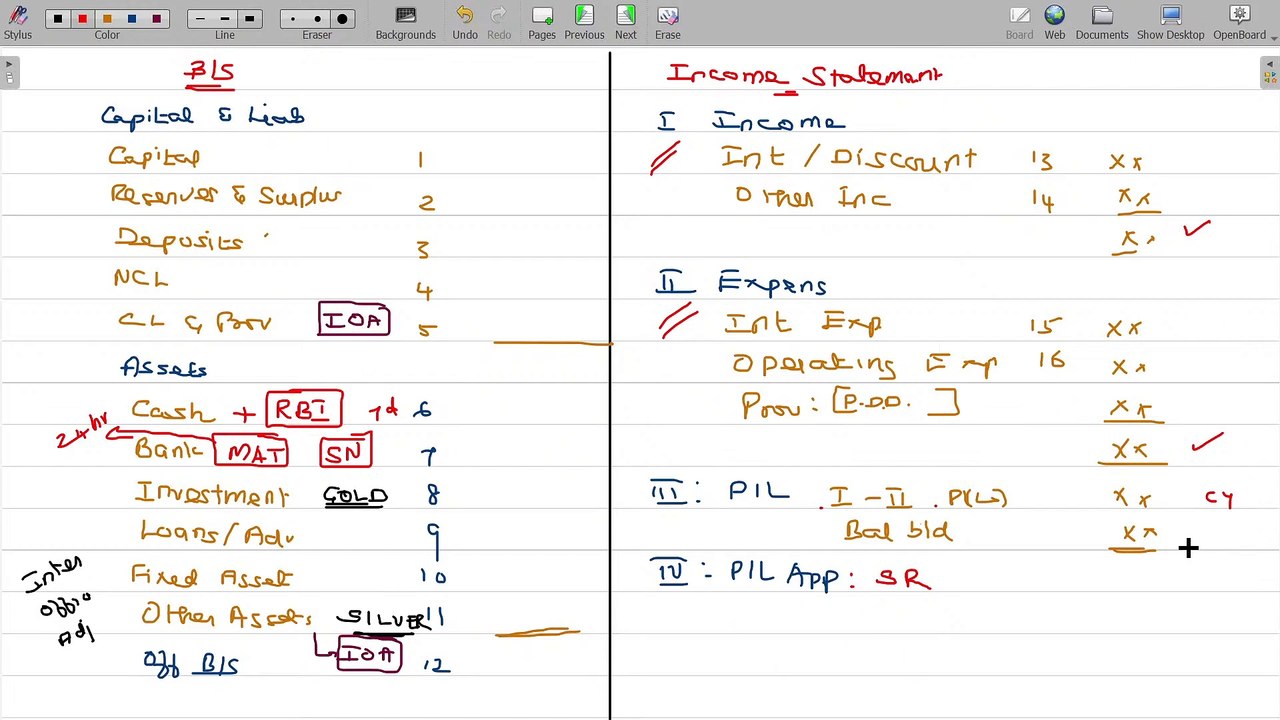 Stylus
Color
Line
Eraser
Backgrounds
Undo
Redo
Pages
Previous
Next
Erase
Board
Web
Documents
Show Desktop
OpenBoard
B/S
Capital & Liab
Capital 1
Reserves & Surplus 2
Deposits 3
NCL 4
CL & Prov IOA 5
Assets
Cash + RBI 7d 6
24 hr
Bank MAT SN 7
Investment GOLD 8
Loans/Adv 9
Fixed Asset 10
Inter
office
Adj
Other Assets SILVER 11
IOA
Off B/S 12
Income Statement
I Income
Int / Discount 13 xx
Other Inc 14 xx
xx
II Expens
Int Exp 15 xx
Operating Exp 16 xx
Prov: [P.D.D. ] xx
xx
III: P/L I - II P(L) xx CY
Bal b/d xx
IV: P/L App: SR